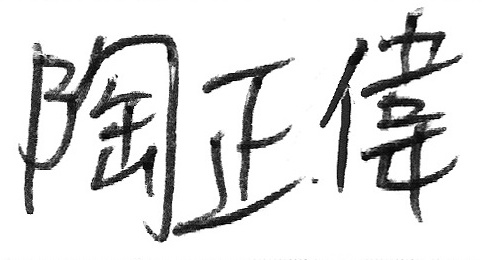 陶正偉